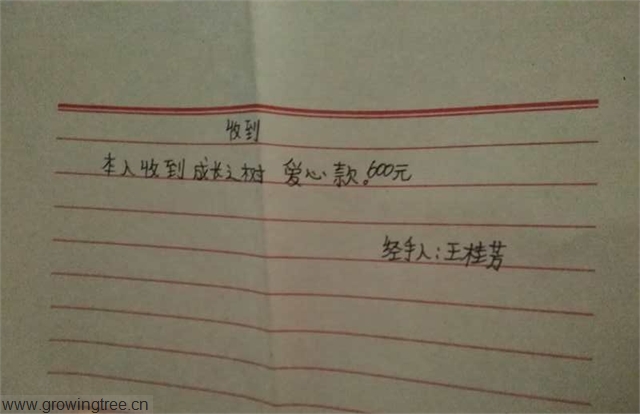 收到
本人收到成长之树 爱心款。600元
经手人:王桂芳
www.growingtree.cn